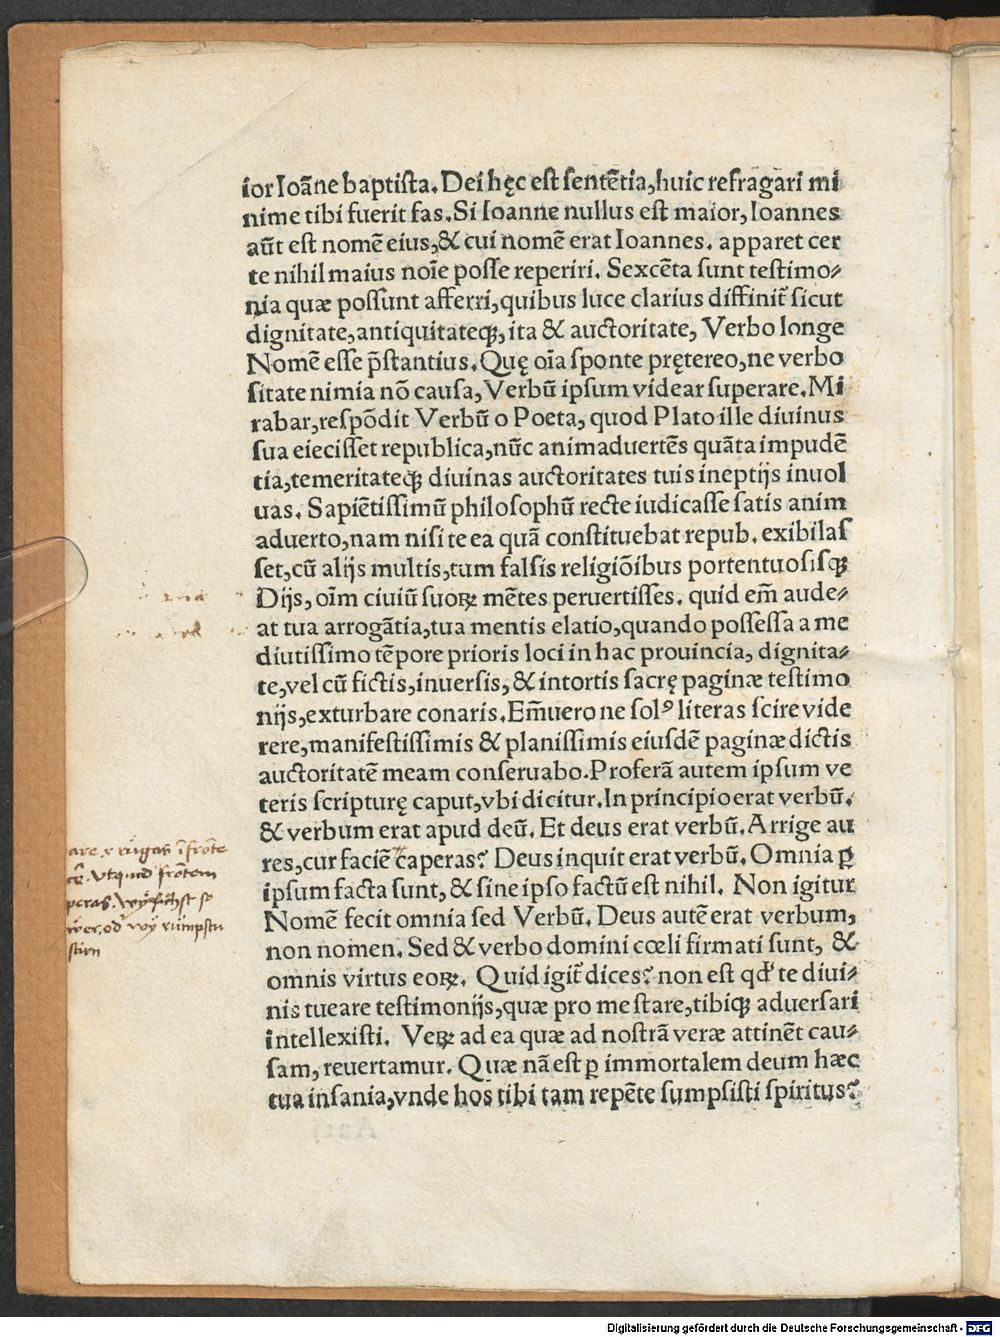 ior Ioāne baptista. Dei hęc est sentētia, huic refragari mi
nime tibi fuerit fas. Si Ioanne nullus est maior, Ioannes
aūt est nomē eius, & cui nomē erat Ioannes. apparet cer
te nihil maius noīe posse reperiri. Sexcēta sunt testimo⸗
nia quæ possunt afferri, quibus luce clarius diffinit᷑ sicut
dignitate, antiquitateqꝫ, ita & auctoritate, Verbo longe
Nomē esse p̄stantius. Quę oīa sponte prętereo, ne verbo
sitate nimia nō causa, Verbū ipsum videar superare. Mi
rabar, respōdit Verbū o Poeta, quod Plato ille diuinus
sua eiecisset republica, nūc animaduertēs quāta impudē
tia, temeritateqꝫ diuinas auctoritates tuis ineptijs inuol
uas. Sapiētissimū philosophū recte iudicasse satis anim
aduerto, nam nisi te ea quā constituebat repub. exibilas
set, cū alijs multis, tum falsis religiōibus portentuosisqꝫ
Dijs, oīm ciuiū suoꝝ mētes peruertisses. quid em̄ aude⸗
at tua arrogātia, tua mentis elatio, quando possessa a me
diutissimo tēpore prioris loci in hac prouincia, dignita⸗
te, vel cū fictis, inuersis, & intortis sacrę paginæ testimo
nijs, exturbare conaris. Em̄uero ne solꝰ literas scire vide
rere, manifestissimis & planissimis eiusdē paginæ dictis
auctoritatē meam conseruabo. Proferā autem ipsum ve
teris scripturę caput, vbi dicitur. In principio erat verbū.
& verbum erat apud deū. Et deus erat verbū. Arrige au
res, cur faciē caperas? Deus inquit erat verbū. Omnia ꝑ
ipsum facta sunt, & sine ipso factū est nihil. Non igitur
Nomē fecit omnia sed Verbū. Deus autē erat verbum,
non nomen. Sed & verbo domini cœli firmati sunt, &
omnis virtus eoꝝ. Quid igit᷑ dices? non est qd' te diui⸗
nis tueare testimonijs, quæ pro me stare, tibiqꝫ aduersari
intellexisti. Veꝝ ad ea quæ ad nostrā veræ attinēt cau⸗
sam, reuertamur. Quæ nā est ꝑ immortalem deum hæc
tua insania, vnde hos tibi tam repēte sumpsisti spiritus?
rugas ī frōte
Vtquid frōtem
peras.
stirn
Digitalisierung gefördert durch die Deutsche Forschungsgemeinschaft - DFG